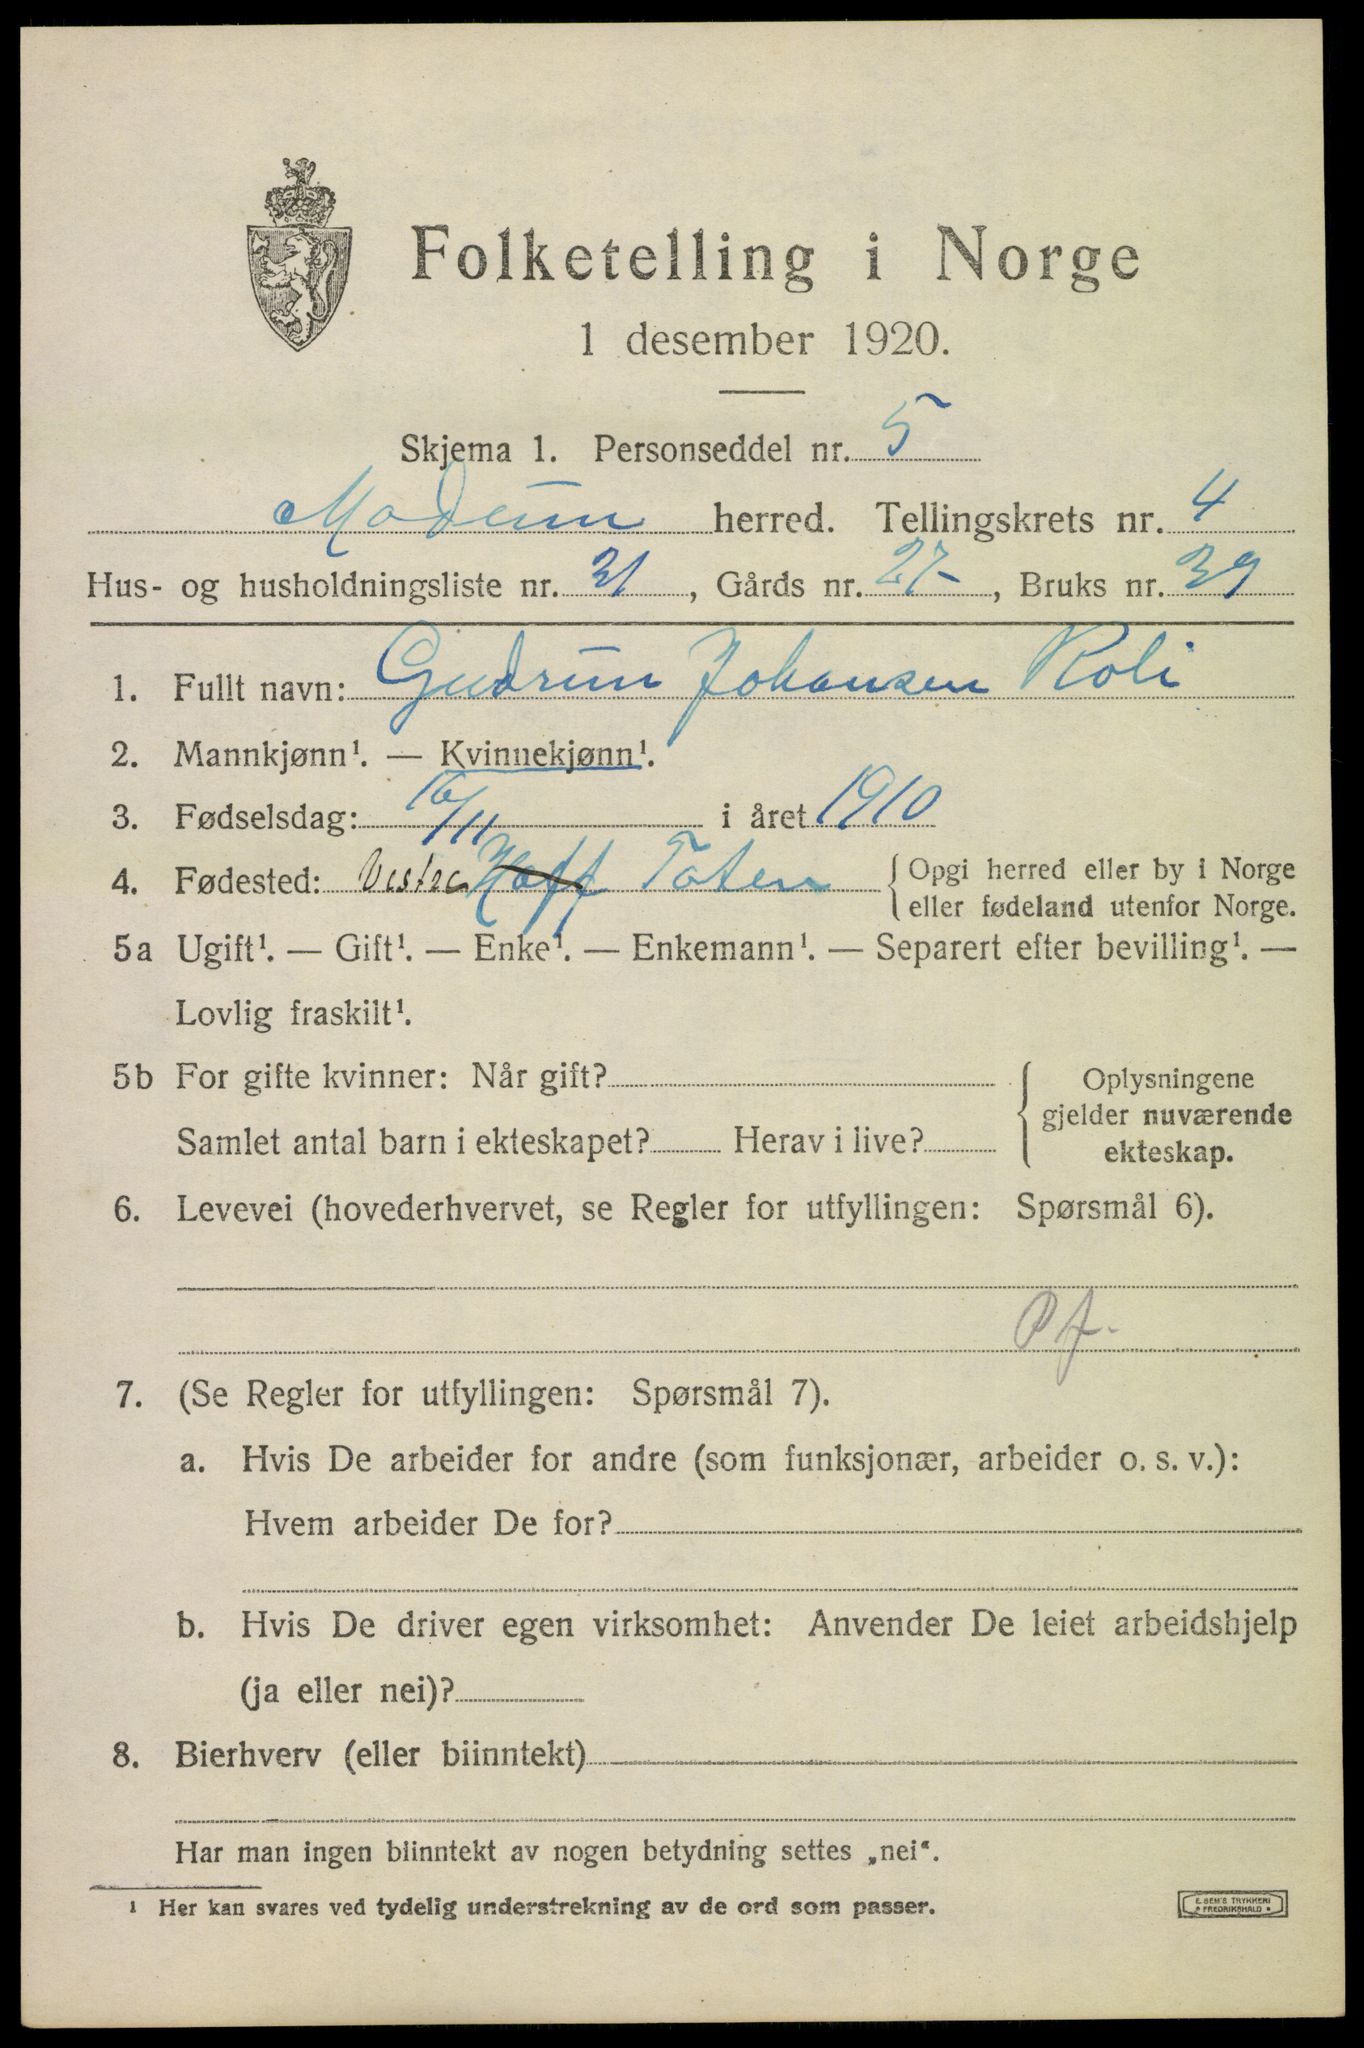 Folketelling i Norge
1 desember 1920.
Skjema 1. Personseddel nr. 5
Modum herred. Tellingskrets nr. 4
Hus- og husholdningsliste nr. 31, Gårds nr. 27-, Bruks nr. 39
1. Fullt navn: Gudrun Johansen Roli
2. Mannkjønn¹. — Kvinnekjønn¹.
3. Fødselsdag: 16/11 i året 1910
4. Fødested: Vestre Hoff Toten { Opgi herred eller by i Norge
eller fødeland utenfor Norge.
5a Ugift¹. — Gift¹. — Enke¹. — Enkemann¹. — Separert efter bevilling¹. —
Lovlig fraskilt¹.
5b For gifte kvinner: Når gift? { Oplysningene
gjelder nuværende
Samlet antal barn i ekteskapet? Herav i live? ekteskap.
6. Levevei (hovederhvervet, se Regler for utfyllingen: Spørsmål 6).
7. (Se Regler for utfyllingen: Spørsmål 7).
a. Hvis De arbeider for andre (som funksjonær, arbeider o. s. v.):
Hvem arbeider De for?
b. Hvis De driver egen virksomhet: Anvender De leiet arbeidshjelp
(ja eller nei)?
8. Bierhverv (eller biinntekt)
Har man ingen biinntekt av nogen betydning settes „nei".
¹ Her kan svares ved tydelig understrekning av de ord som passer.
E. SEM'S TRYKKERI
* FREDRIKSHALD *